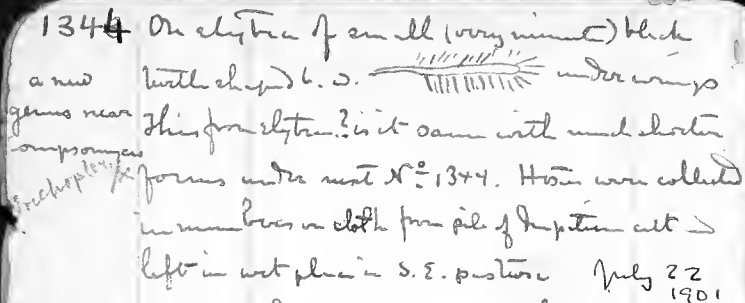 1344 On elytra of small (very minute) black
a new turtle shaped b. w. under wings
genus near This from elytra? is it same with much shorter
Compsomyces forms under next Nº 1344. Hosts were collected
in numbers on cloth from pile of cut
left in wet place in S. E. pasture July 22
1901